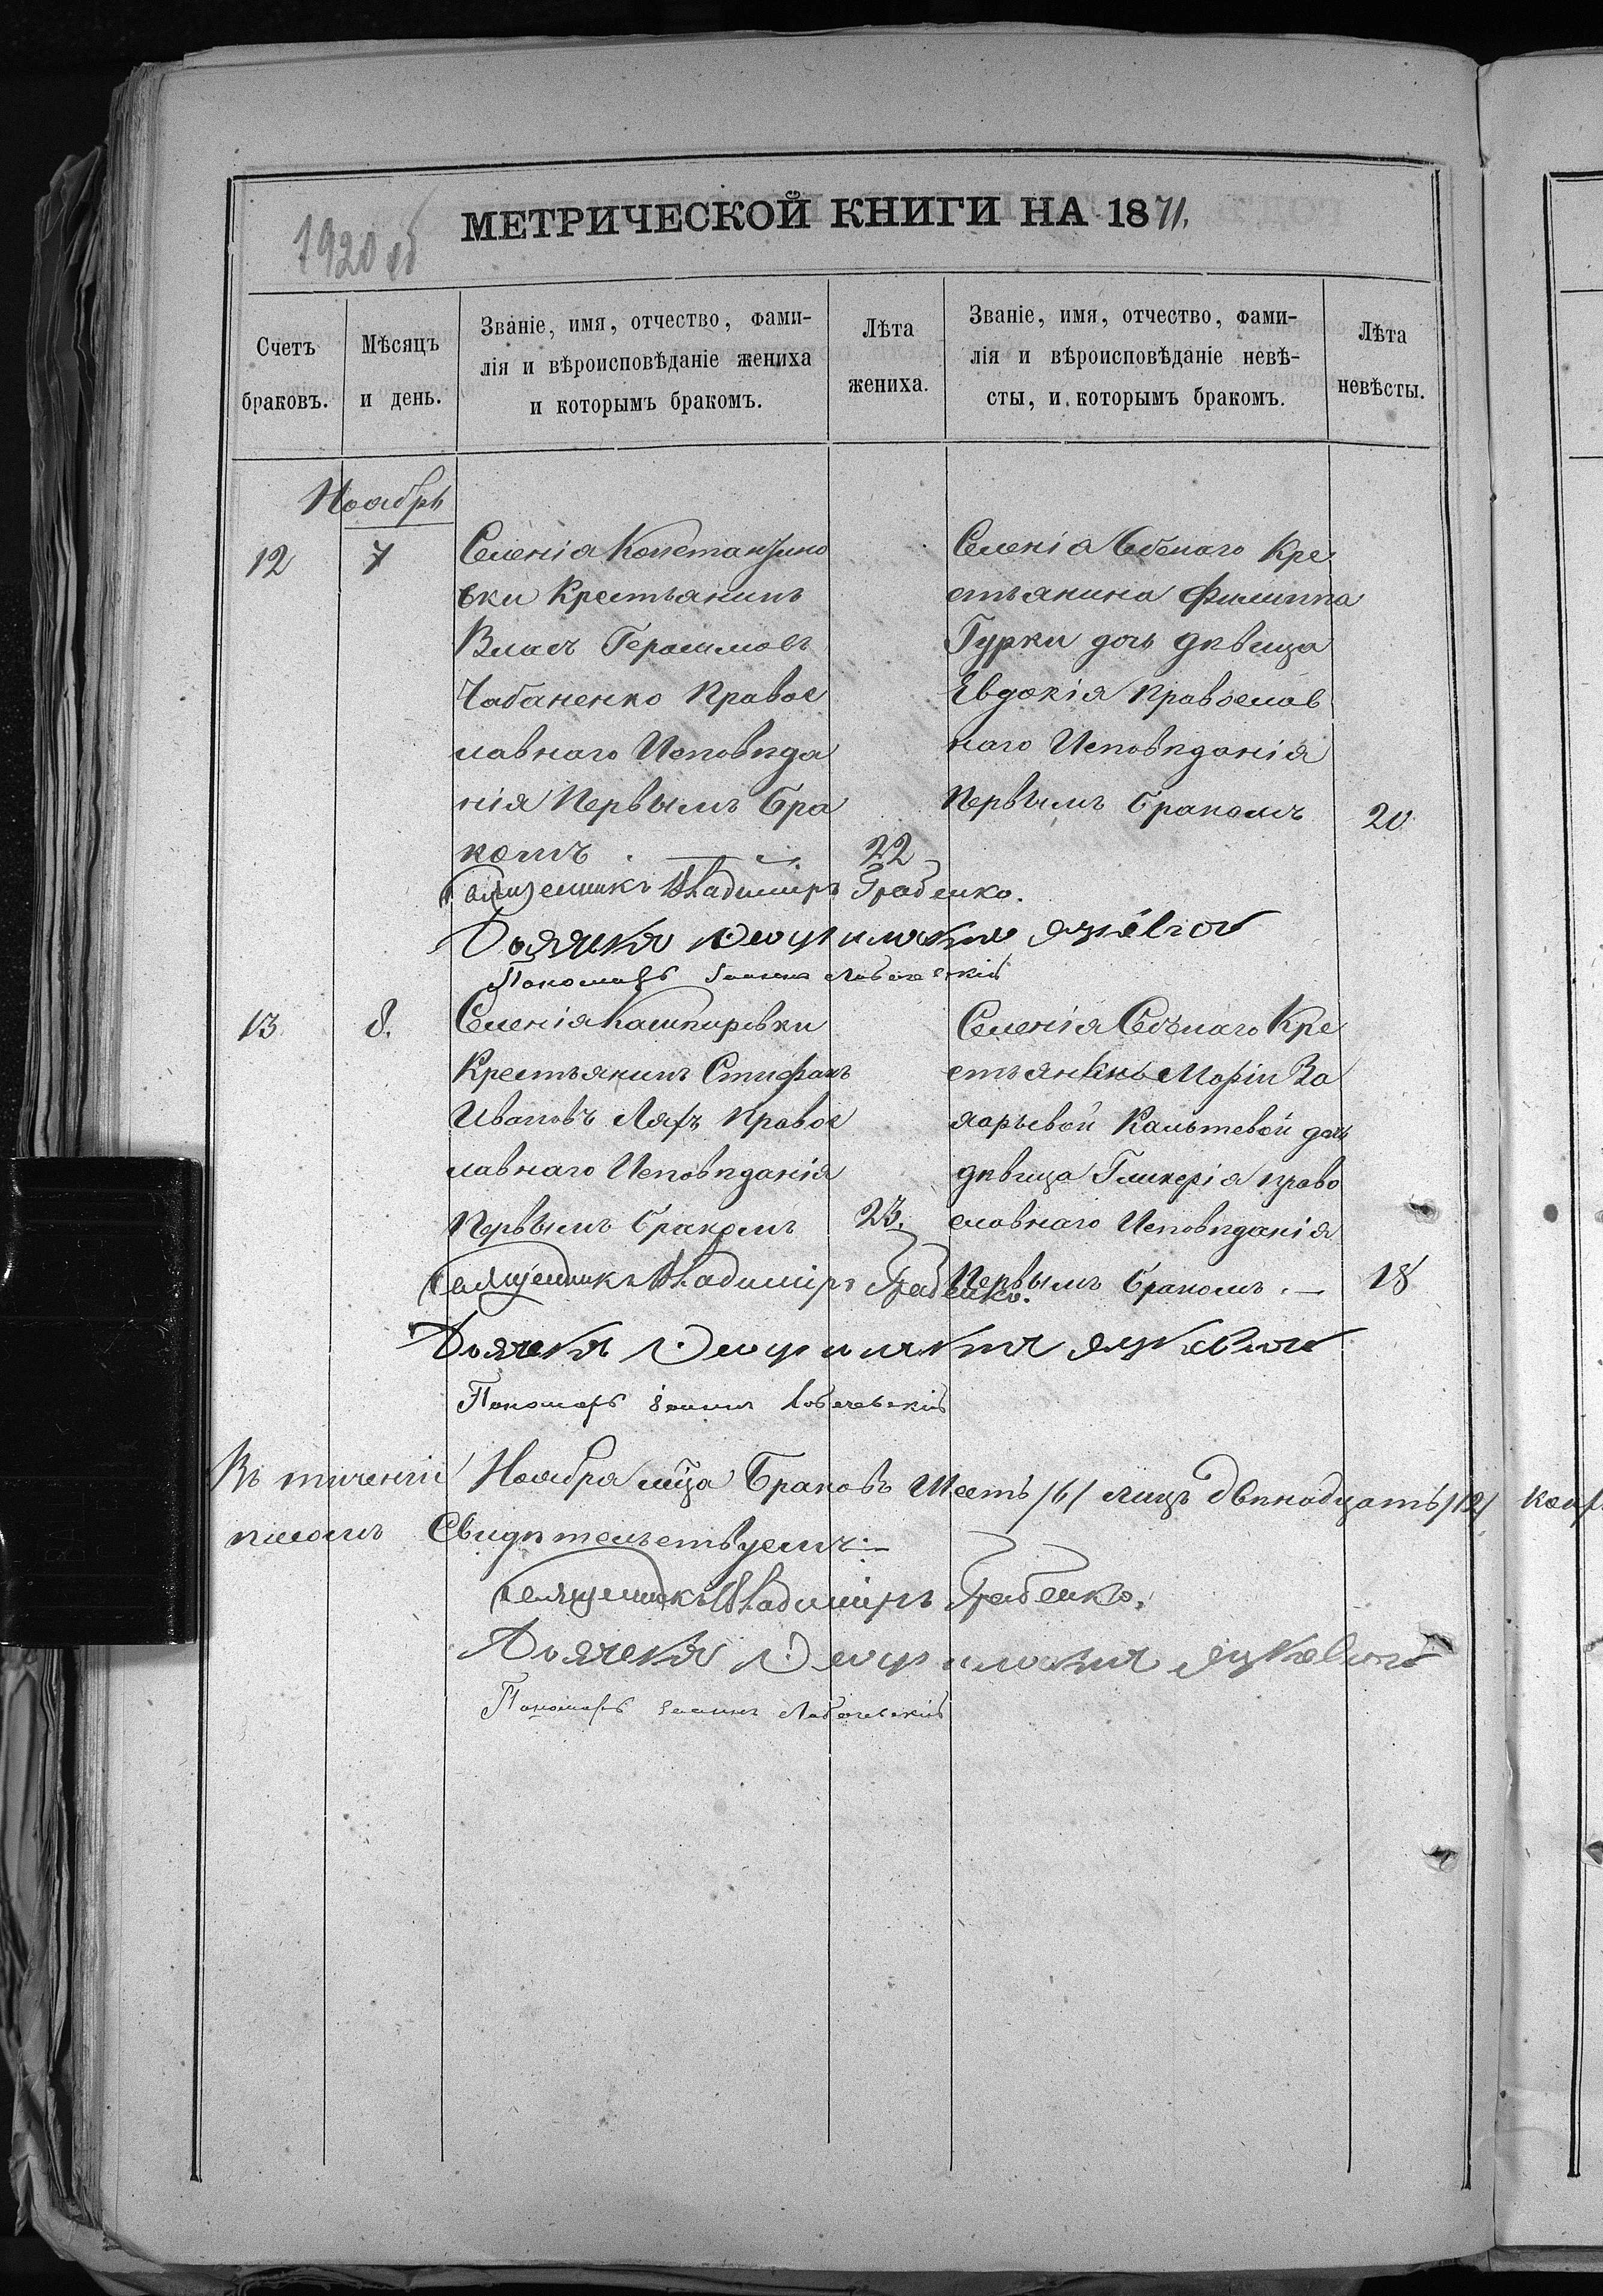 МЕТРИЧЕСКОЙ КНИГИ НА 1871.
1920 об
Счетъ браковъ.
Мѣсяцъ и день.
Званіе, имя, отчество, фами-
лія и вѣроисповѣданіе жениха
и которымъ бракомъ.
Лѣта жениха.
Званіе, имя, отчество, фами-
лія и вѣроисповѣданіе невѣ-
сты, и которымъ бракомъ.
Лѣта невѣсты.
Ноябрь
12
7
Селенія Константино
вки Крестьянинъ
Власъ Герасимовъ
Чабаненко Правос
лавнаго Исповѣда
нія Первымъ Бра
комъ
22
Селенія Ееенаго Кре
стьянина Филиппа
Гурки дочь дѣвица
Евдокія Православ
наго Исповѣданія
Первымъ бракомъ
20
Священникъ Владимиръ Грабенко.
Дьячекъ
Пономарь Іоаннъ
13
8.
Селенія Кашпировки
Крестьянинъ Стефанъ
Ивановъ Ляхъ Правос
лавнаго Исповѣданія
Первымъ бракомъ
23.
Селенія Кре
стьянки Маріи За
харьевой дочь
дѣвица Гликерія право
славнаго Исповѣданія
Первымъ бракомъ.
18
Священникъ Владиміръ Грабенко.
Дьячекъ
Пономарь Іоаннъ
Въ теченіи Ноября мца Браковъ Шесть /6/ лицъ двѣнадцать /12/
Свидѣтельствуемъ:
Священникъ Владиміръ Грабенко.
Дьячекъ
Пономарь Іоаннъ